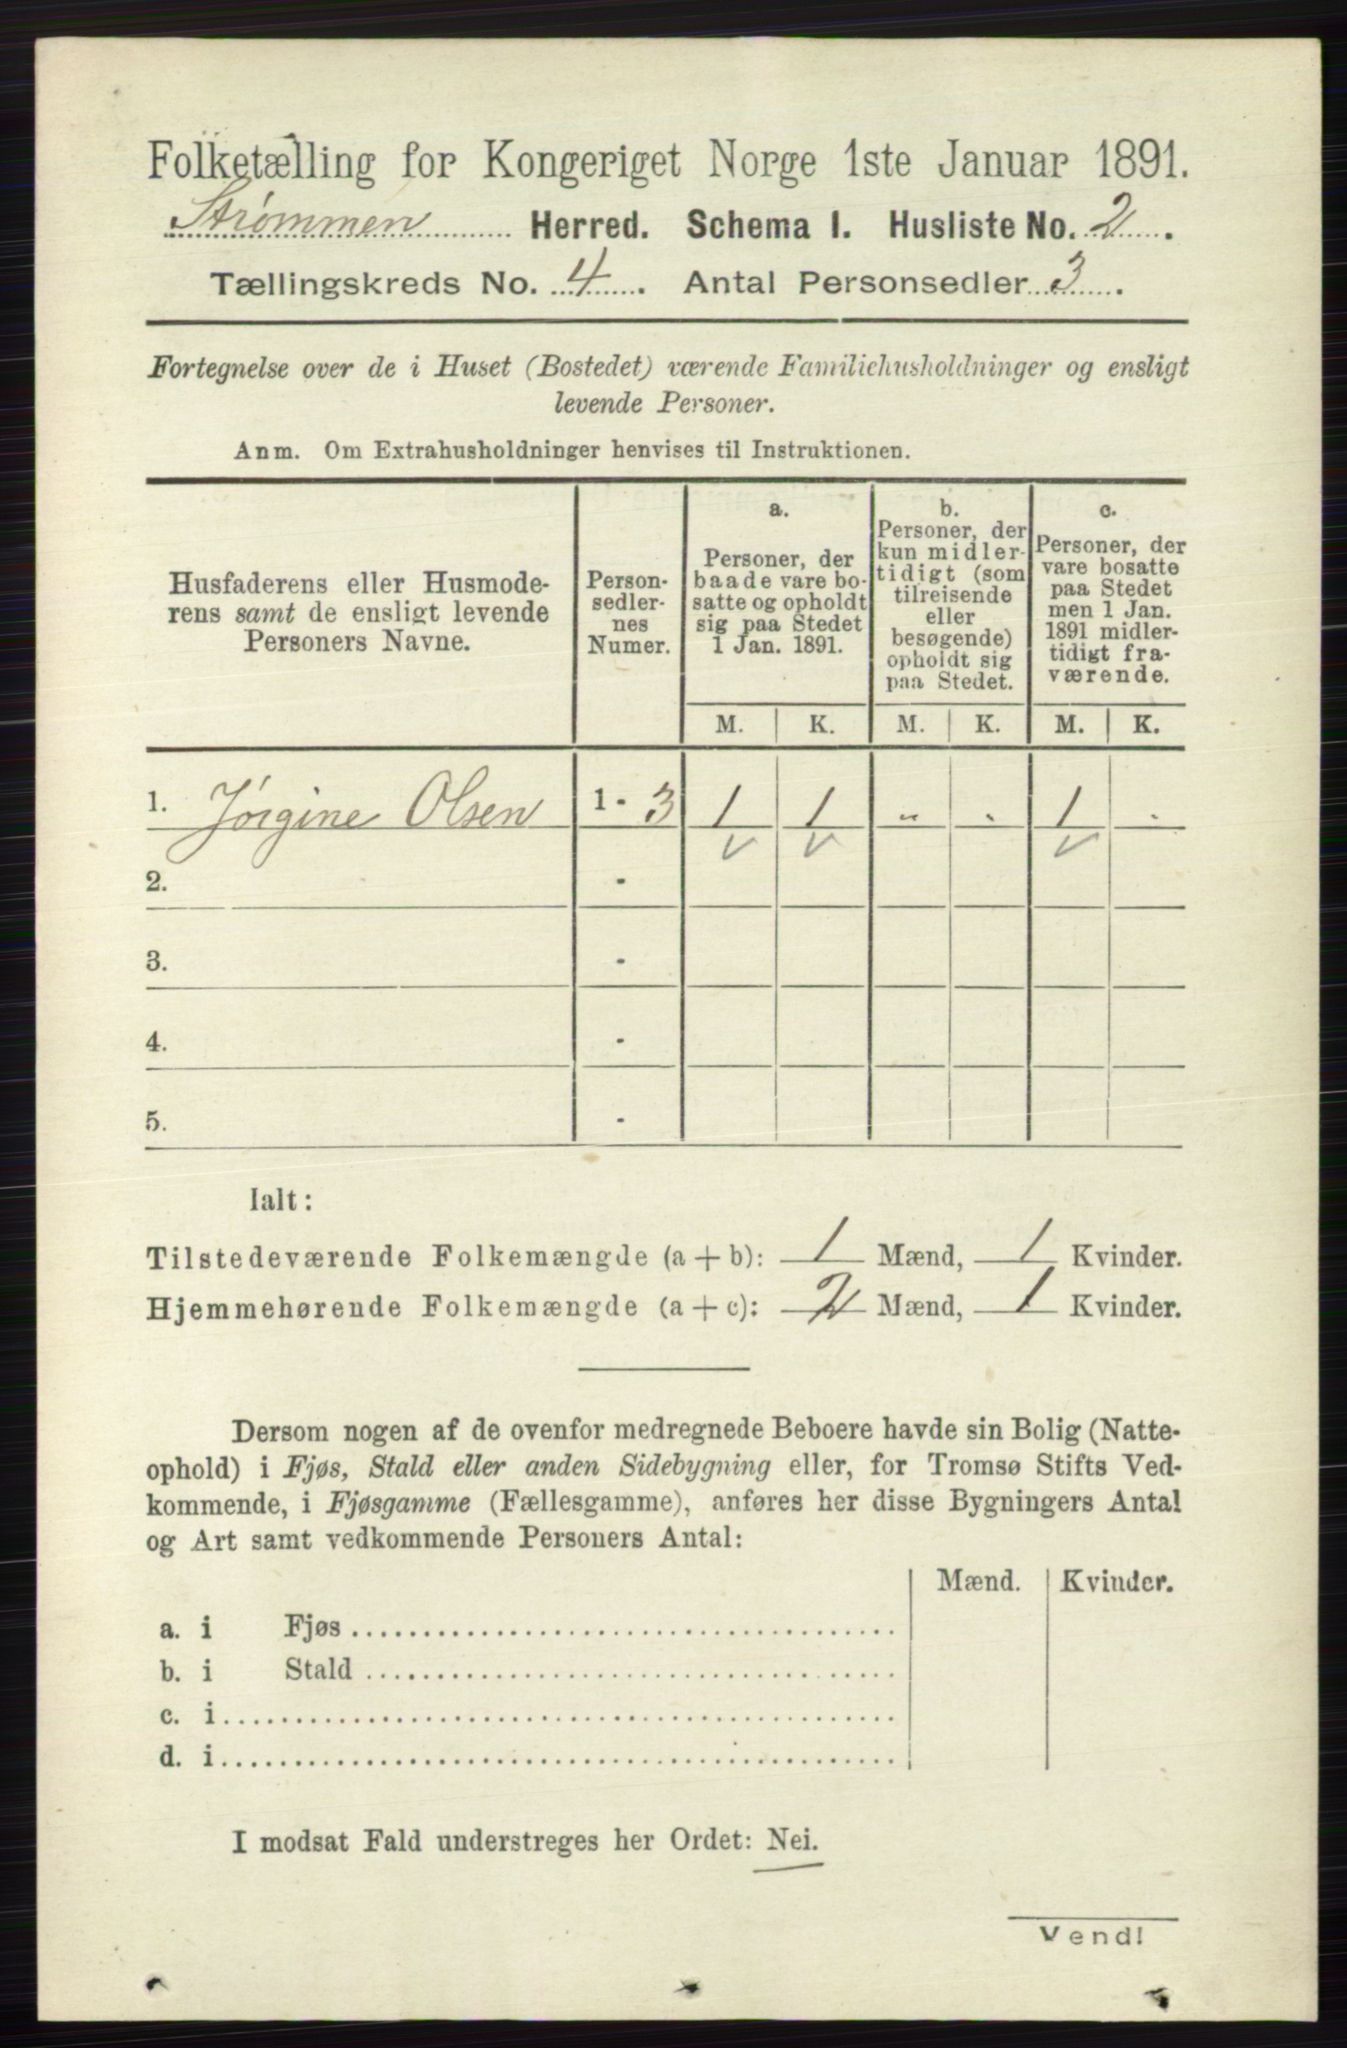 Folketælling for Kongeriget Norge 1ste Januar 1891.
Strømmen Herred. Schema I. Husliste No. 2.
Tællingskreds No. 4. Antal Personsedler 3.
Fortegnelse over de i Huset (Bostedet) værende Familiehusholdninger og ensligt
levende Personer.
Anm. Om Extrahusholdninger henvises til Instruktionen.
Husfaderens eller Husmode-
rens samt de ensligt levende
Personers Navne.
Person-
sedler-
nes
Numer.
a.
Personer, der
baade vare bo-
satte og opholdt
sig paa Stedet
1 Jan. 1891.
b.
Personer, der
kun midler-
tidigt (som
tilreisende
eller
besøgende)
opholdt sig
paa Stedet.
c.
Personer, der
vare bosatte
paa Stedet
men 1 Jan.
1891 midler-
tidigt fra-
værende.
M. K. M. K. M. K.
1. Jørgine Olsen 1 - 3 1 1 „ . 1 .
2. -
3. -
4. -
5. -
Ialt:
Tilstedeværende Folkemængde (a + b): 1 Mænd, 1 Kvinder.
Hjemmehørende Folkemængde (a + c): 2 Mænd, 1 Kvinder.
Dersom nogen af de ovenfor medregnede Beboere havde sin Bolig (Natte-
ophold) i Fjøs, Stald eller anden Sidebygning eller, for Tromsø Stifts Ved-
kommende, i Fjøsgamme (Fællesgamme), anføres her disse Bygningers Antal
og Art samt vedkommende Personers Antal:
Mænd. Kvinder.
a. i Fjøs
b. i Stald
c. i
d. i
I modsat Fald understreges her Ordet: Nei.
Vend!